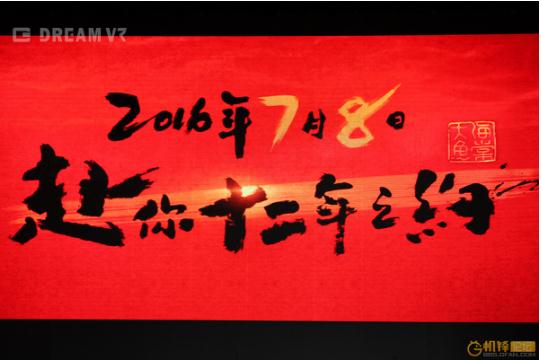 DREAM VR
2016年7月8日
大鱼海棠
赴你十二年之約
机锋论坛
BBS.GFAN.COM